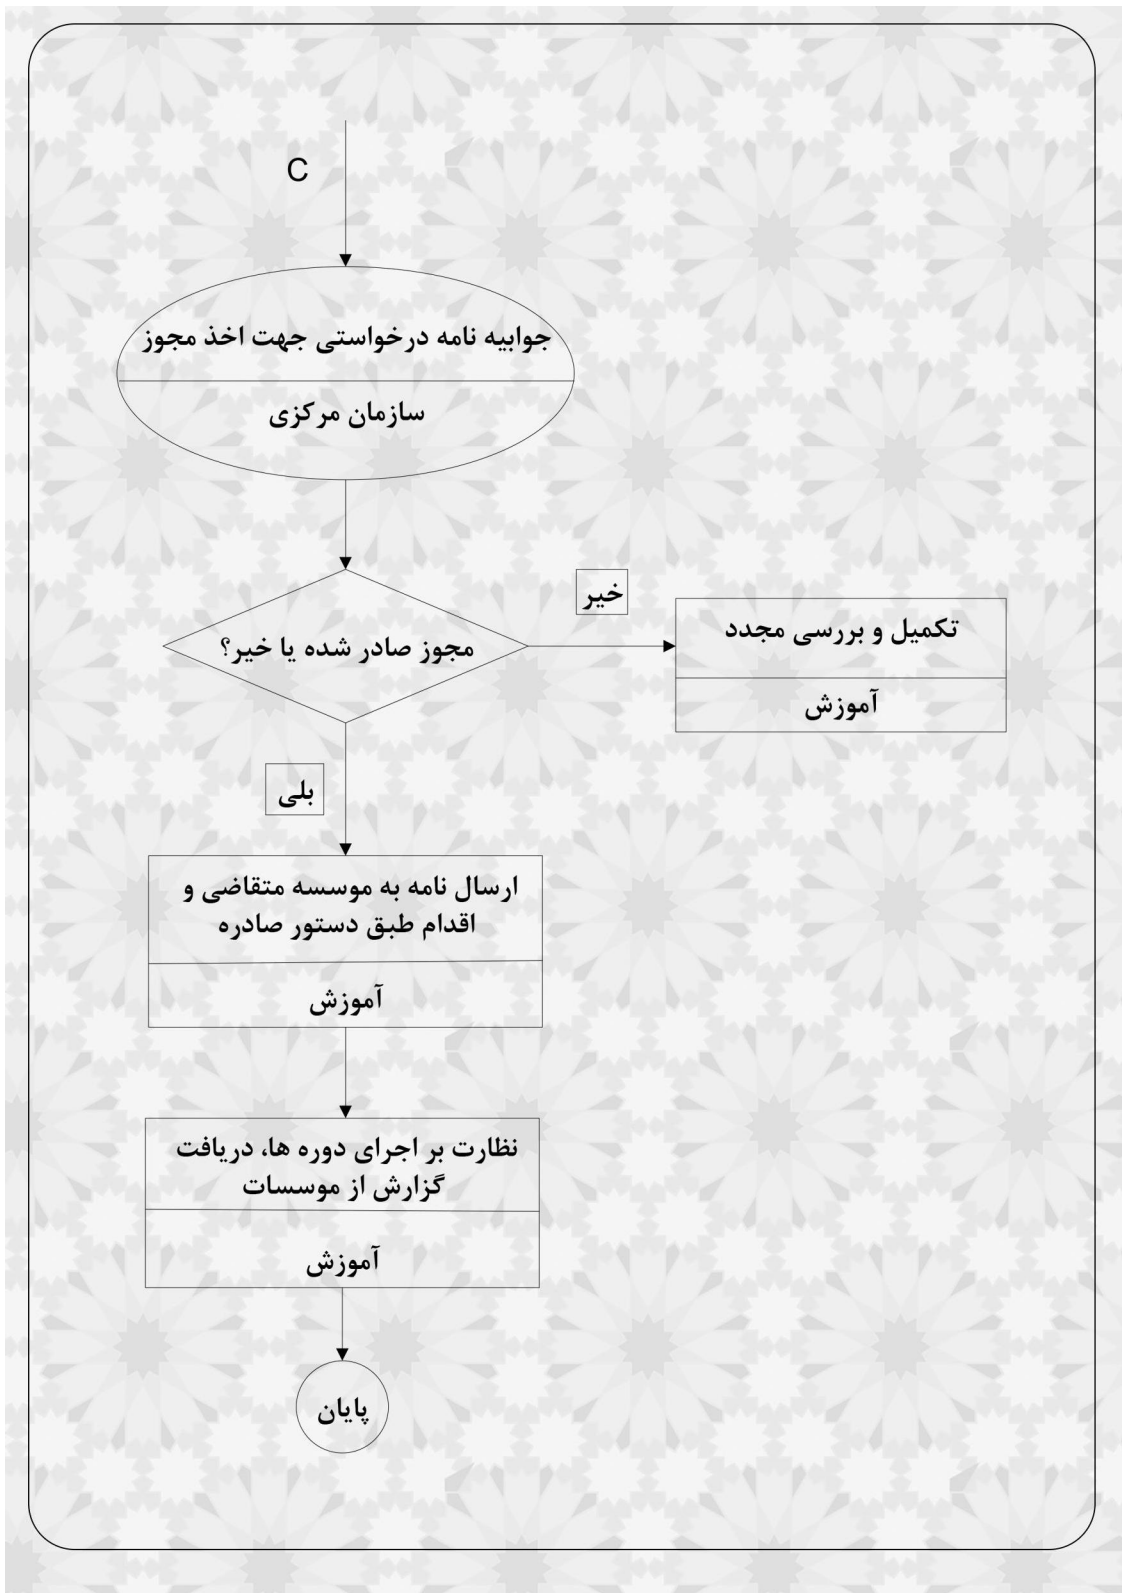 C
جوابیه نامه درخواستی جهت اخذ مجوز
سازمان مرکزی
خیر
مجوز صادر شده یا خیر؟
تکمیل و بررسی مجدد
آموزش
بلی
ارسال نامه به موسسه متقاضی و
اقدام طبق دستور صادره
آموزش
نظارت بر اجرای دوره ها، دریافت
گزارش از موسسات
آموزش
پایان